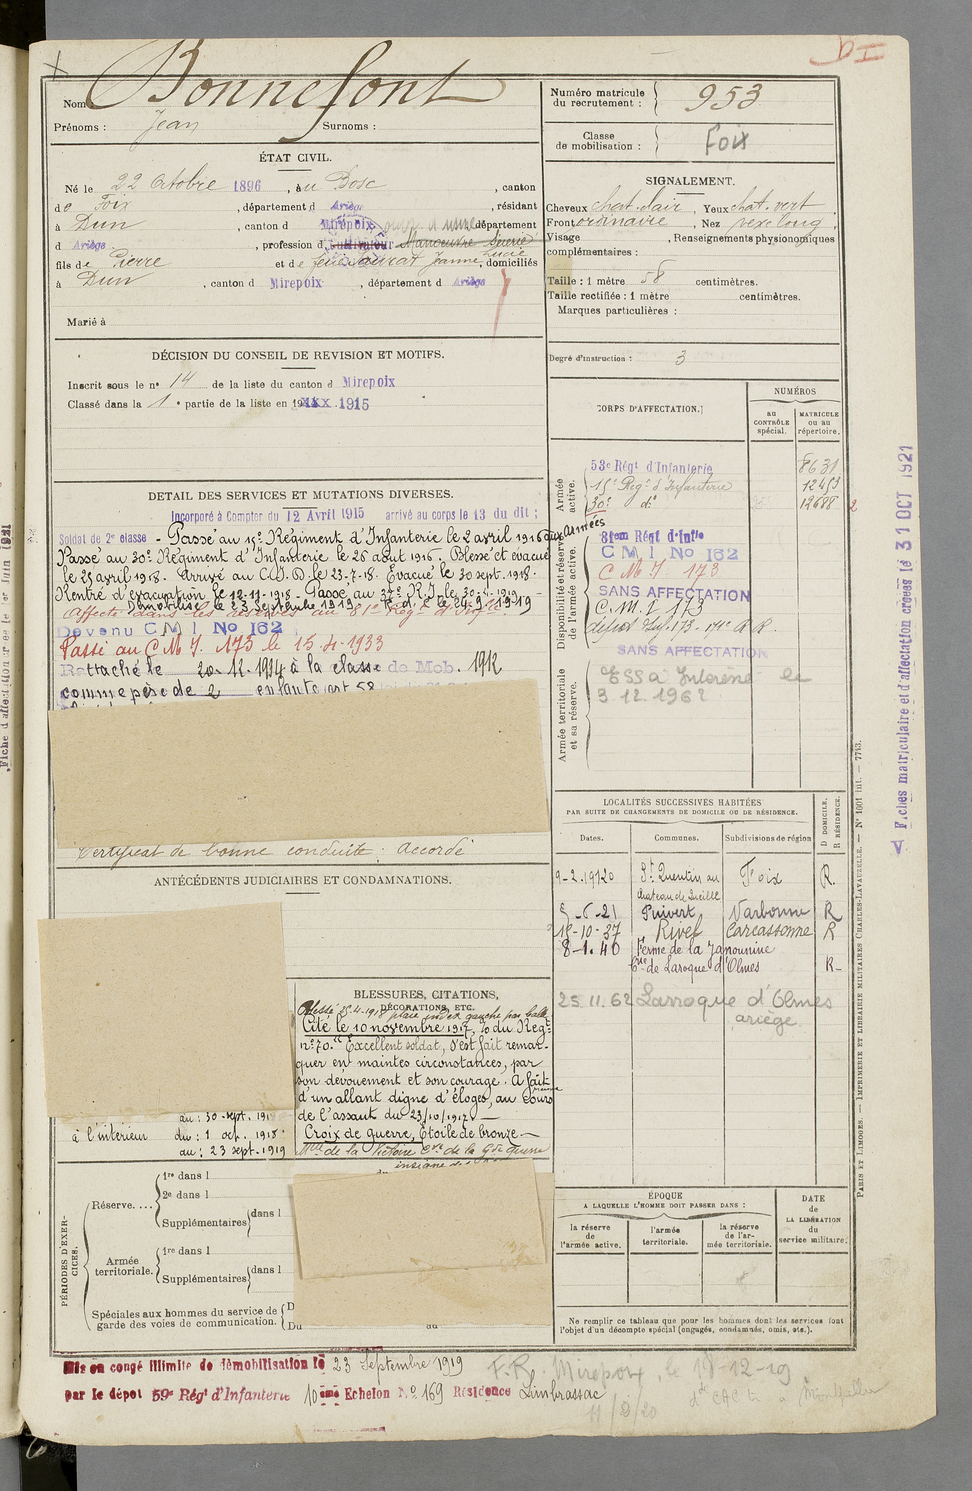 Nom Bonnefont
Prénoms : Jean Surnoms :
Numéro matricule du recrutement : 953
Classe de mobilisation : Foix
ÉTAT CIVIL.
Né le 22 Octobre 1896, au Bosc, canton
de Foix, département d Ariège, résidant
à Dun, canton d Mirepoix département
d Ariège, profession d Cultivateur Manoeuvre Scierie
fils de Pierre et de feue Saurat Jeanne Lucie, domiciliés
à Dun, canton d Mirepoix, département d Ariège
Marié à
SIGNALEMENT.
Cheveux chat. clair, Yeux chat. vert,
Front ordinaire, Nez vexe long,
Visage , Renseignements physionomiques
complémentaires :
Taille : 1 mètre 58 centimètres.
Taille rectifiée : 1 mètre centimètres.
Marques particulières :
Degré d'instruction : 3
DÉCISION DU CONSEIL DE REVISION ET MOTIFS.
Inscrit sous le n° 14 de la liste du canton d Mirepoix
Classé dans la 1e partie de la liste en 1915
DETAIL DES SERVICES ET MUTATIONS DIVERSES.
Incorporé à Compter du 12 Avril 1915 arrivé au corps le 13 du dit ;
Soldat de 2e classe - Passé au 15e Régiment d'Infanterie le 2 avril 1916 aux Armées
Passé au 30e Régiment d'Infanterie le 26 août 1916. Blessé et évacué
le 25 avril 1918. Arrivé au C.I.D. le 23-7-18. Evacué le 30 sept. 1918.
Rentré d'évacuation le 12-11-1918 - Passé au 37e R.I. le 30-4-1919 -
Démobilisé le 23 Septembre 1919
Affecté dans les réserves au 81e Rég. d'Inf.
Devenu C M I No 162
Passé au C M I. 173 le 15-4-1933
Rattaché le 20-12-1934 à la classe de Mob. 1912
comme père de 2 enfants
Certificat de bonne conduite : Accordé
CORPS D'AFFECTATION.
NUMÉROS
AU CONTRÔLE spécial.
MATRICULE OU AU répertoire.
Armée active.
53e Régt d'Infanterie 8631
15e Regt d'Infanterie 12453
30e d° 12688
Disponibilité et réserve de l'armée active.
81em Régt d'Infie
C M I No 162
C M I 173
SANS AFFECTATION
C.M.I 173
dépôt Inf. 173
SANS AFFECTATION
Armée territoriale et sa réserve.
ESSA Intéressé le
3.12.1962
ANTÉCÉDENTS JUDICIAIRES ET CONDAMNATIONS.
BLESSURES, CITATIONS,
DÉCORATIONS, ETC.
Blessé 25-4-1918 plaie index gauche par balle
Cité le 10 novembre 1917, O/ du Régt
n° 70. "Excellent soldat, s'est fait remar-
quer en maintes circonstances, par
son dévouement et son courage. A fait preuve
d'un allant digne d'éloges, au cours
de l'assaut du 23/10/1917 —
Croix de guerre, Etoile de bronze. —
Mlle de la Victoire Cve de la Gde Guerre
au : 30 sept. 191
à l'intérieur du : 1 oct. 1918
au : 23 sept. 1919
LOCALITÉS SUCCESSIVES HABITÉES
PAR SUITE DE CHANGEMENTS DE DOMICILE OU DE RÉSIDENCE.
Dates. Communes. Subdivisions de région
D DOMICILE. R RÉSIDENCE.
9-2-1920 St Quentin au Foix R.
5-6-21 Puivert Narbonne R
15-10-37 Rivel Carcassonne R
8-1.40 Ferme de la Janounine
Cne de Laroque d'Olmes R
25.11.62 Laroque d'Olmes
ariège
PÉRIODES D'EXERCICES.
Réserve....
1re dans l
2e dans l
Supplémentaires dans l
Armée territoriale.
1re dans l
Supplémentaires dans l
Spéciales aux hommes du service de
garde des voies de communication.
Du
au
ÉPOQUE
A LAQUELLE L'HOMME DOIT PASSER DANS :
la réserve de l'armée active.
l'armée territoriale.
la réserve de l'armée territoriale.
DATE de LA LIBÉRATION du service militaire.
Ne remplir ce tableau que pour les hommes dont les services font
l'objet d'un décompte spécial (engagés, condamnés, omis, etc.).
Mis en congé illimité de démobilisation le 23 Septembre 1919
par le dépôt 59e Régt d'Infanterie 10eme Echelon No 169 Résidence Limbrassac
F.R. Mirepoix, le 18-12-19
11/2/20
PARIS ET LIMOGES. — IMPRIMERIE ET LIBRAIRIE MILITAIRES CHARLES-LAVAUZELLE. — N° 1001 int. — 7743.
Fiches matriculaire et d'affectation créées le 31 OCT 1921